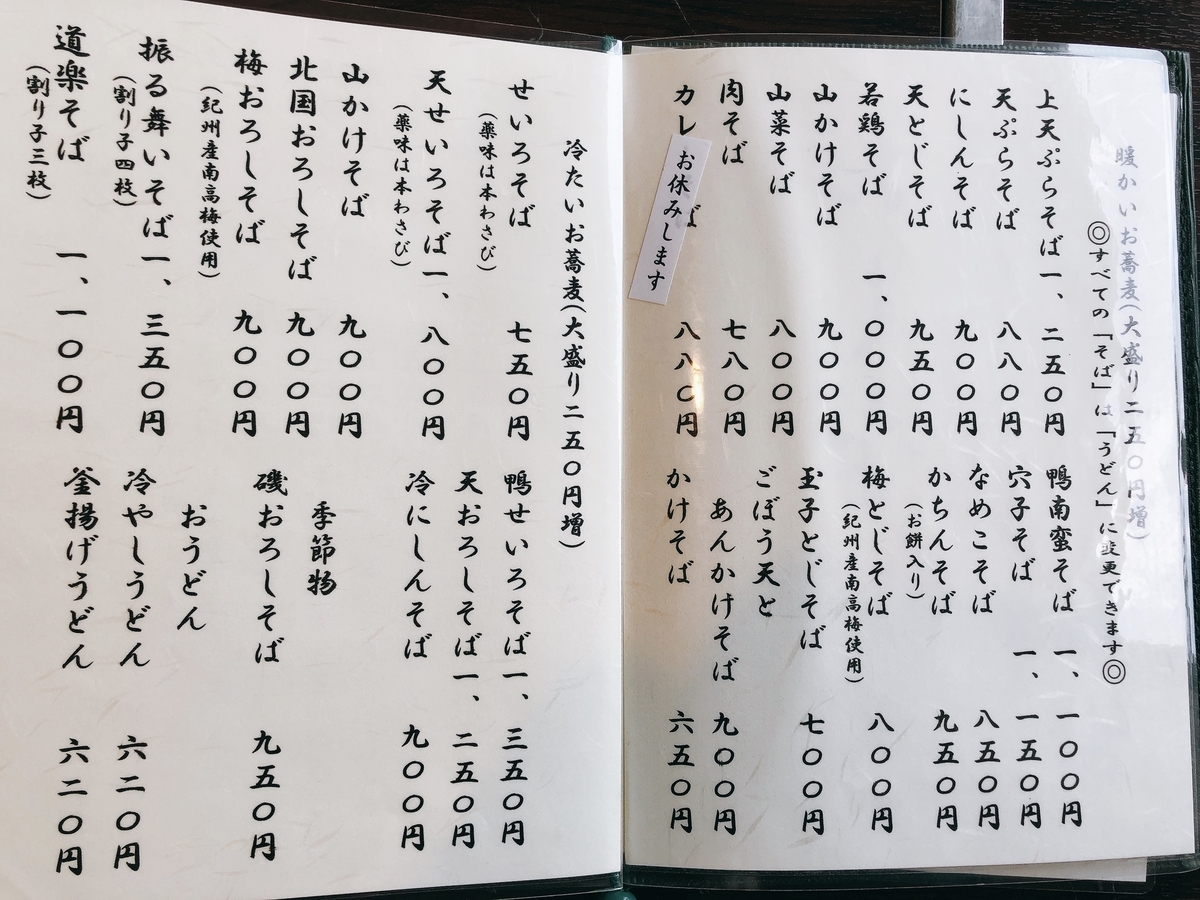 暖かいお蕎麦(大盛り二五〇円増)
◎すべての「そば」は「うどん」に変更できます◎
上天ぷらそば一、二五〇円
天ぷらそば 八八〇円
にしんそば 九〇〇円
天とじそば 九五〇円
若鶏そば 一、〇〇〇円
山かけそば 九〇〇円
山菜そば 八〇〇円
肉そば 七八〇円
カレ ば 八八〇円
お休みします
鴨南蛮そば 一、一〇〇円
穴子そば 一、一五〇円
なめこそば 八五〇円
かちんそば 九五〇円
(お餅入り)
梅とじそば 八〇〇円
(紀州産南高梅使用)
玉子とじそば 七〇〇円
ごぼう天と
あんかけそば 九〇〇円
かけそば 六五〇円
冷たいお蕎麦(大盛り二五〇円増)
せいろそば 七五〇円
(薬味は本わさび)
天せいろそば一、八〇〇円
(薬味は本わさび)
山かけそば 九〇〇円
北国おろしそば 九〇〇円
梅おろしそば 九〇〇円
(紀州産南高梅使用)
振る舞いそば一、三五〇円
(割り子四枚)
道楽そば 一、一〇〇円
(割り子三枚)
鴨せいろそば一、三五〇円
天おろしそば一、二五〇円
冷にしんそば 九〇〇円
季節物
磯おろしそば 九五〇円
おうどん
冷やしうどん 六二〇円
釜揚げうどん 六二〇円